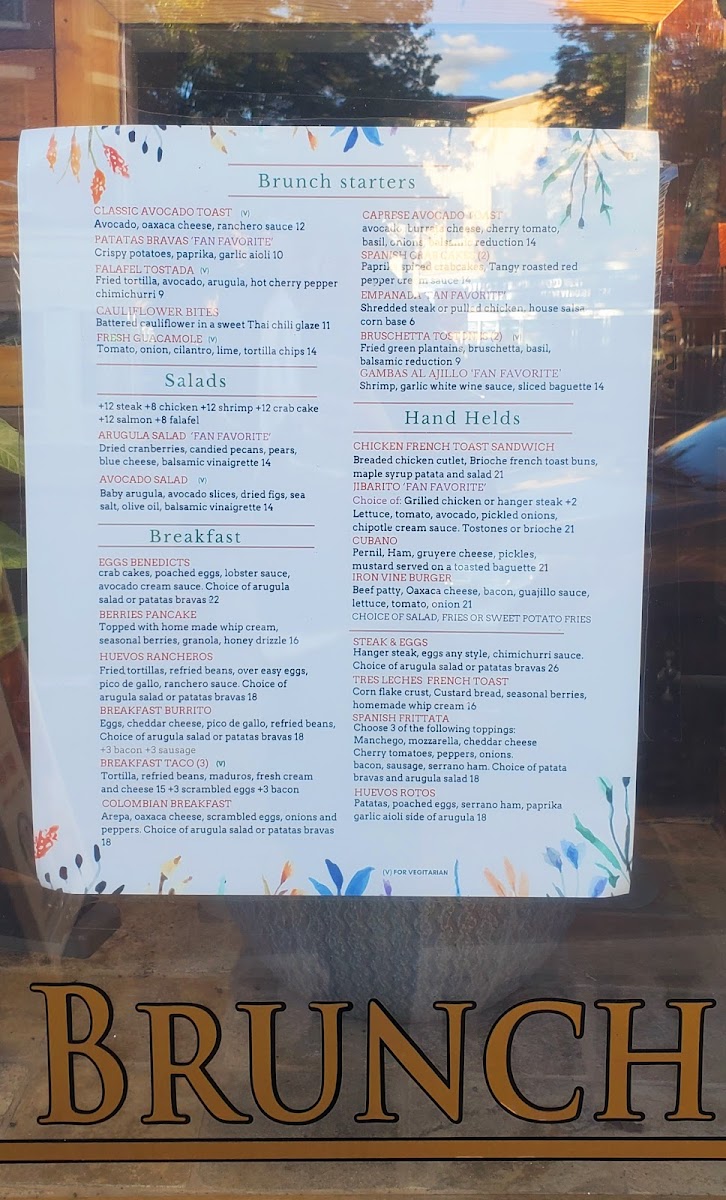 Brunch starters
CLASSIC AVOCADO TOAST (V)
Avocado, oaxaca cheese, ranchero sauce 12
PATATAS BRAVAS 'FAN FAVORITE'
Crispy potatoes, paprika, garlic aioli 10
FALAFEL TOSTADA (V)
Fried tortilla, avocado, arugula, hot cherry pepper
chimichurri 9
CAULIFLOWER BITES
Battered cauliflower in a sweet Thai chili glaze 11
FRESH GUACAMOLE (V)
Tomato, onion, cilantro, lime, tortilla chips 14
CAPRESE AVOCADO TOAST
avocado, burrata cheese, cherry tomato,
basil, onions, balsamic reduction 14
SPANISH CRAB CAKES (2)
spiced crabcakes, Tangy roasted red
pepper cream sauce 14
EMPANADA 'FAN FAVORITE'
Shredded steak or pulled chicken, house salsa
corn base 6
BRUSCHETTA TOSTONES (2) (V)
Fried green plantains, bruschetta, basil,
balsamic reduction 9
GAMBAS AL AJILLO 'FAN FAVORITE'
Shrimp, garlic white wine sauce, sliced baguette 14
Salads
+12 steak +8 chicken +12 shrimp +12 crab cake
+12 salmon +8 falafel
ARUGULA SALAD 'FAN FAVORITE'
Dried cranberries, candied pecans, pears,
blue cheese, balsamic vinaigrette 14
AVOCADO SALAD (V)
Baby arugula, avocado slices, dried figs, sea
salt, olive oil, balsamic vinaigrette 14
Breakfast
EGGS BENEDICTS
crab cakes, poached eggs, lobster sauce,
avocado cream sauce. Choice of arugula
salad or patatas bravas 22
BERRIES PANCAKE
Topped with home made whip cream,
seasonal berries, granola, honey drizzle 16
HUEVOS RANCHEROS
Fried tortillas, refried beans, over easy eggs,
pico de gallo, ranchero sauce. Choice of
arugula salad or patatas bravas 18
BREAKFAST BURRITO
Eggs, cheddar cheese, pico de gallo, refried beans,
Choice of arugula salad or patatas bravas 18
+3 bacon +3 sausage
BREAKFAST TACO (3) (V)
Tortilla, refried beans, maduros, fresh cream
and cheese 15 +3 scrambled eggs +3 bacon
COLOMBIAN BREAKFAST
Arepa, oaxaca cheese, scrambled eggs, onions and
peppers. Choice of arugula salad or patatas bravas
18
Hand Helds
CHICKEN FRENCH TOAST SANDWICH
Breaded chicken cutlet, Brioche french toast buns,
maple syrup patata and salad 21
JIBARITO 'FAN FAVORITE'
Choice of: Grilled chicken or hanger steak +2
Lettuce, tomato, avocado, pickled onions,
chipotle cream sauce. Tostones or brioche 21
CUBANO
Pernil, Ham, gruyere cheese, pickles,
mustard served on a toasted baguette 21
IRON VINE BURGER
Beef patty, Oaxaca cheese, bacon, guajillo sauce,
lettuce, tomato, onion 21
CHOICE OF SALAD, FRIES OR SWEET POTATO FRIES
STEAK & EGGS
Hanger steak, eggs any style, chimichurri sauce.
Choice of arugula salad or patatas bravas 26
TRES LECHES FRENCH TOAST
Corn flake crust, Custard bread, seasonal berries,
homemade whip cream 16
SPANISH FRITTATA
Choose 3 of the following toppings:
Manchego, mozzarella, cheddar cheese
Cherry tomatoes, peppers, onions.
bacon, sausage, serrano ham. Choice of patata
bravas and arugula salad 18
HUEVOS ROTOS
Patatas, poached eggs, serrano ham, paprika
garlic aioli side of arugula 18
(V) FOR VEGITARIAN
BRUNCH